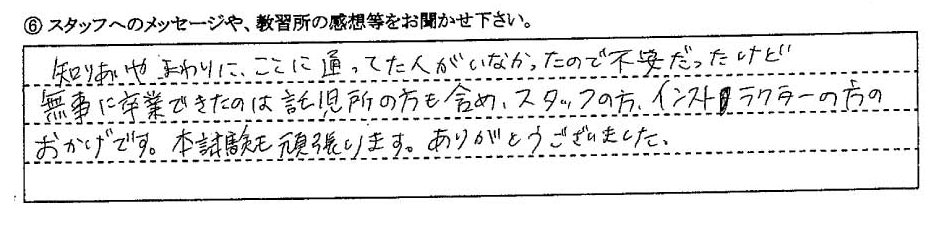 ⑥ スタッフへのメッセージや、教習所の感想等をお聞かせ下さい。
知りあいやまわりに、ここに通ってた人がいなかったので不安だったけど
無事に卒業できたのは託児所の方も含め、スタッフの方、インストラクターの方の
おかげです。本試験も頑張ります。ありがとうございました。